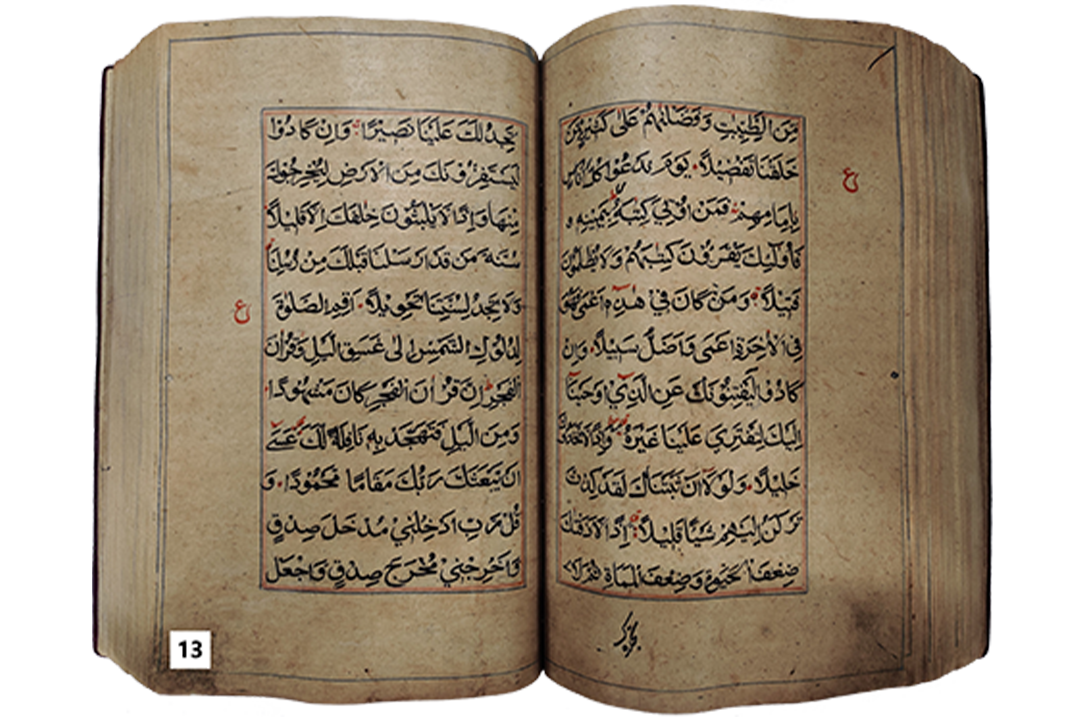 مِنَ الطَّيِّبٰتِ وَفَضَّلْنٰهُمْ عَلٰى كَثِيْرٍ مِّمَّنْ
خَلَقْنَا تَفْضِيْلًا يَوْمَ نَدْعُوْا كُلَّ اُنَاسٍ
بِاِمَامِهِمْ فَمَنْ اُوْتِيَ كِتٰبَهٗ بِيَمِيْنِهٖ وَ
فَاُولٰٓئِكَ يَقْرَءُوْنَ كِتٰبَهُمْ وَلَا يُظْلَمُوْنَ
فَتِيْلًا وَمَنْ كَانَ فِيْ هٰذِهٖ اَعْمٰى فَهُوَ
فِي الْاٰخِرَةِ اَعْمٰى وَاَضَلُّ سَبِيْلًا وَاِنْ
كَادُوْا لَيَفْتِنُوْنَكَ عَنِ الَّذِيْ اَوْحَيْنَا
اِلَيْكَ لِتَفْتَرِيَ عَلَيْنَا غَيْرَهٗ وَاِذًا لَّاتَّخَذُوْكَ
خَلِيْلًا وَلَوْلَا اَنْ ثَبَّتْنٰكَ لَقَدْ كِدْتَّ
تَرْكَنُ اِلَيْهِمْ شَيْئًا قَلِيْلًا اِذًا لَّاَذَقْنٰكَ
ضِعْفَ الْحَيٰوةِ وَضِعْفَ الْمَمَاتِ ثُمَّ لَا
ع
تَجِدُ لَكَ عَلَيْنَا نَصِيْرًا وَاِنْ كَادُوْا
لَيَسْتَفِزُّوْنَكَ مِنَ الْاَرْضِ لِيُخْرِجُوْكَ
مِنْهَا وَاِذًا لَّا يَلْبَثُوْنَ خِلٰفَكَ اِلَّا قَلِيْلًا
سُنَّةَ مَنْ قَدْ اَرْسَلْنَا قَبْلَكَ مِنْ رُّسُلِنَا
وَلَا تَجِدُ لِسُنَّتِنَا تَحْوِيْلًا اَقِمِ الصَّلٰوةَ
لِدُلُوْكِ الشَّمْسِ اِلٰى غَسَقِ الَّيْلِ وَقُرْاٰنَ
الْفَجْرِ اِنَّ قُرْاٰنَ الْفَجْرِ كَانَ مَشْهُوْدًا
وَمِنَ الَّيْلِ فَتَهَجَّدْ بِهٖ نَافِلَةً لَّكَ عَسٰى
اَنْ يَّبْعَثَكَ رَبُّكَ مَقَامًا مَّحْمُوْدًا وَ
قُلْ رَّبِّ اَدْخِلْنِيْ مُدْخَلَ صِدْقٍ
وَّاَخْرِجْنِيْ مُخْرَجَ صِدْقٍ وَّاجْعَلْ
ع
13